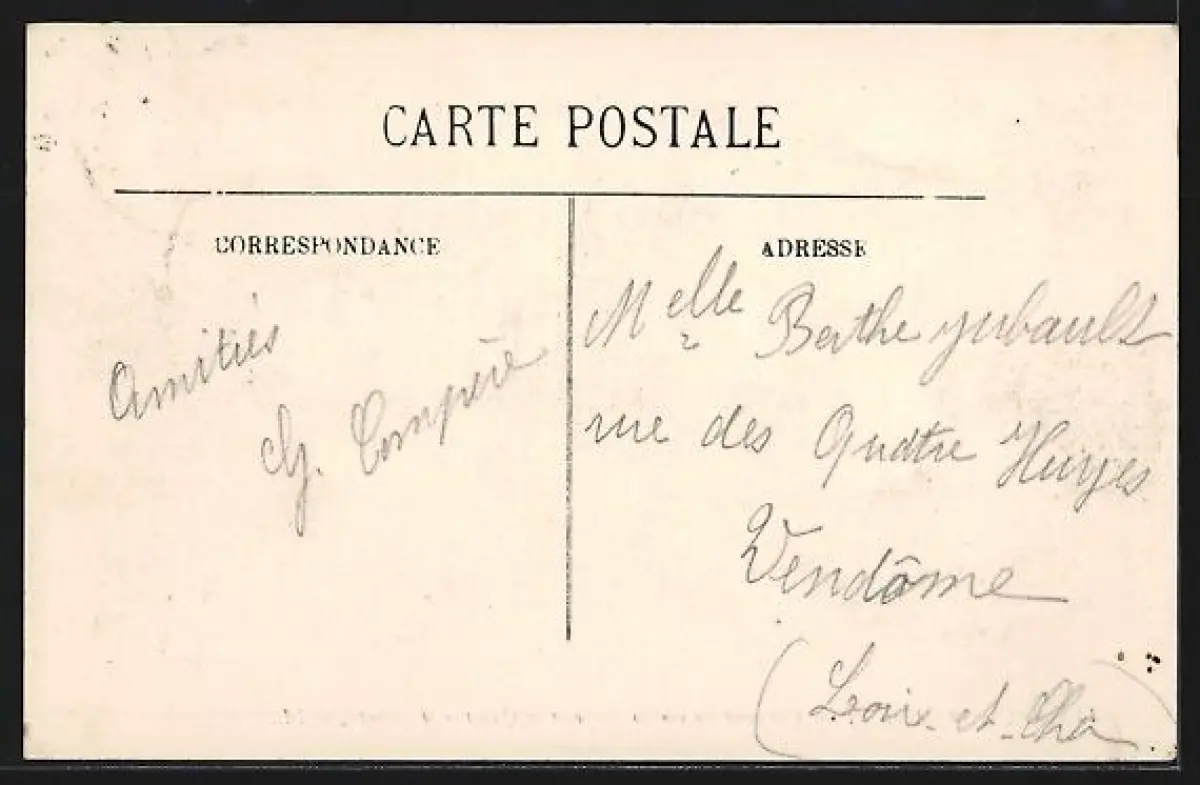 CARTE POSTALE
CORRESPONDANCE
ADRESSE
Amitiés
Compère
Melle Berthe
rue des Quatre
Vendôme
(Loir-et-Cher)